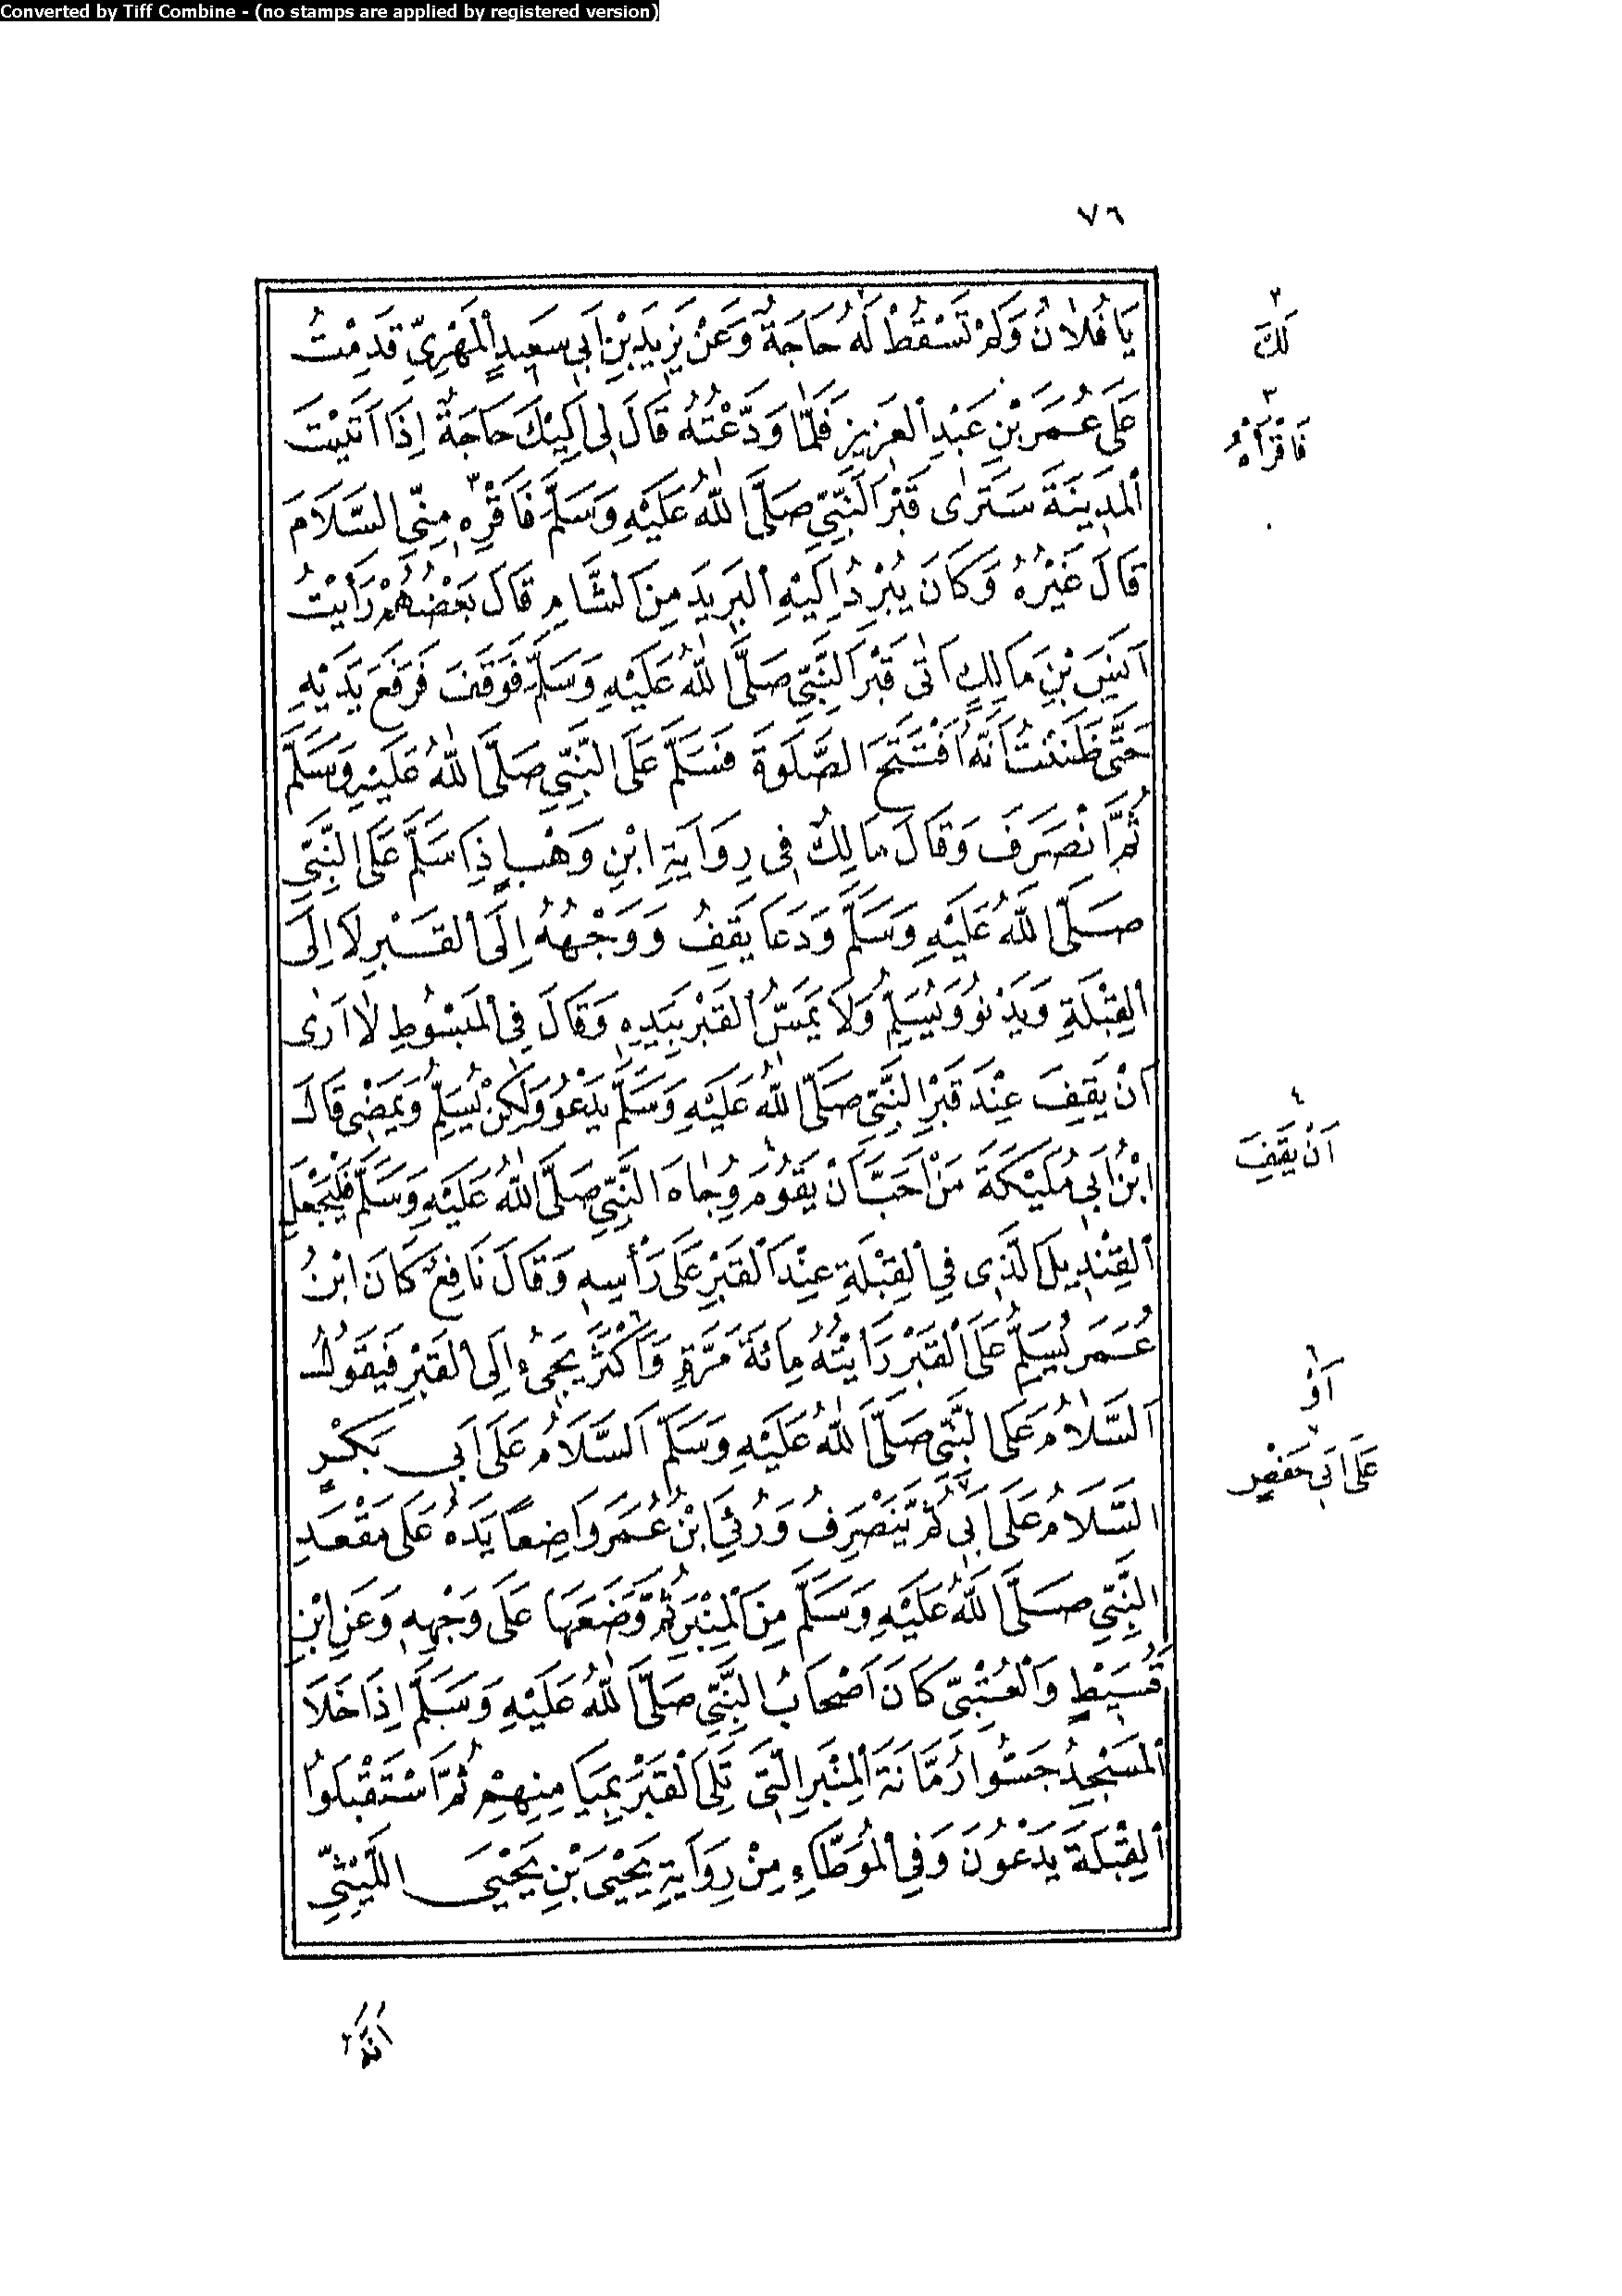 Converted by Tiff Combine - (no stamps are applied by registered version)
٧٦
يَا فُلَانُ وَلَمْ تَسْقُطْ لَهُ حَاجَةٌ وَعَنْ يَزِيدَ بْنِ اَبِي سَعِيدٍ الْمَهْرِيِّ قَدِمْتُ
عَلَى عُمَرَ بْنِ عَبْدِ الْعَزِيزِ فَلَمَّا وَدَّعْتُهُ قَالَ لِي اِلَيْكَ حَاجَةٌ اِذَا اَتَيْتَ
الْمَدِينَةَ سَتَرٰى قَبْرَ النَّبِيِّ صَلَّى اللّٰهُ عَلَيْهِ وَسَلَّمَ فَاَقْرِهِ ٣ مِنِّي السَّلَامَ
قَالَ غَيْرُهُ وَكَانَ يُبْرِدُ اِلَيْهِ الْبَرِيدَ مِنَ الشَّامِ قَالَ بَعْضُهُمْ رَاَيْتُ
اَنَسَ بْنِ مَالِكٍ اَتٰى قَبْرَ النَّبِيِّ صَلَّى اللّٰهُ عَلَيْهِ وَسَلَّمَ فَوَقَفَ فَرَفَعَ يَدَيْهِ
حَتَّى ظَنَنْتُ اَنَّهُ افْتَتَحَ الصَّلَوةَ فَسَلَّمَ عَلَى النَّبِيِّ صَلَّى اللّٰهُ عَلَيْهِ وَسَلَّمَ
ثُمَّ انْصَرَفَ وَقَالَ مَالِكٌ فِي رِوَايَةِ ابْنِ وَهْبٍ اِذَا سَلَّمَ عَلَى النَّبِيِّ
صَلَّى اللّٰهُ عَلَيْهِ وَسَلَّمَ وَدَعَا يَقِفُ وَوَجْهُهُ اِلَى الْقَبْرِ لَا اِلَى
الْقِبْلَةِ وَيَدْنُو وَيُسَلِّمُ وَلَا يَمَسُّ الْقَبْرَ بِيَدِهِ وَقَالَ فِي الْمَبْسُوطِ لَا اَرٰى
اَنْ يَقِفَ عِنْدَ قَبْرِ النَّبِيِّ صَلَّى اللّٰهُ عَلَيْهِ وَسَلَّمَ يَدْعُو وَلٰكِنْ يُسَلِّمُ وَيَمْضِي قَالَ
ابْنُ اَبِي مُلَيْكَةَ مَنْ اَحَبَّ اَنْ يَقُومَ ٤ وِجَاهَ النَّبِيِّ صَلَّى اللّٰهُ عَلَيْهِ وَسَلَّمَ فَلْيَجْعَلِ
الْقِنْدِيلَ الَّذِي فِي الْقِبْلَةِ عِنْدَ الْقَبْرِ عَلَى رَأْسِهِ وَقَالَ نَافِعٌ كَانَ ابْنُ
عُمَرَ يُسَلِّمُ عَلَى الْقَبْرِ رَاَيْتُهُ مِائَةَ مَرَّةٍ وَاَكْثَرَ ٦ يَجِيءُ اِلَى الْقَبْرِ فَيَقُولُ
اَلسَّلَامُ عَلَى النَّبِيِّ صَلَّى اللّٰهُ عَلَيْهِ وَسَلَّمَ اَلسَّلَامُ عَلَى اَبِي بَكْرٍ
السَّلَامُ عَلَى اَبِي ٧ ثُمَّ يَنْصَرِفُ وَرُئِيَ ابْنُ عُمَرَ وَاضِعًا يَدَهُ عَلَى مَقْعَدِ
النَّبِيِّ صَلَّى اللّٰهُ عَلَيْهِ وَسَلَّمَ مِنَ الْمِنْبَرِ ثُمَّ وَضَعَهَا عَلَى وَجْهِهِ وَعَنِ ابْنِ
قُسَيْطٍ وَالْعُتْبِيِّ كَانَ اَصْحَابُ النَّبِيِّ صَلَّى اللّٰهُ عَلَيْهِ وَسَلَّمَ اِذَا خَلَا
الْمَسْجِدُ جَسُّوا رُمَّانَةَ الْمِنْبَرِ الَّتِي تَلِي الْقَبْرَ بِمَيَامِنِهِمْ ثُمَّ اسْتَقْبَلُوا
الْقِبْلَةَ يَدْعُونَ وَفِي الْمُوَطَّاءِ مِنْ رِوَايَةِ يَحْيَى بْنِ يَحْيَى اللَّيْثِيِّ
٢
لَكَ
٣
فَاقْرَأْهُ
٤
اَنْ يَقِفَ
٦
اَوْ
عَلَى اَبِي حَفْصٍ
اَنَّهُ